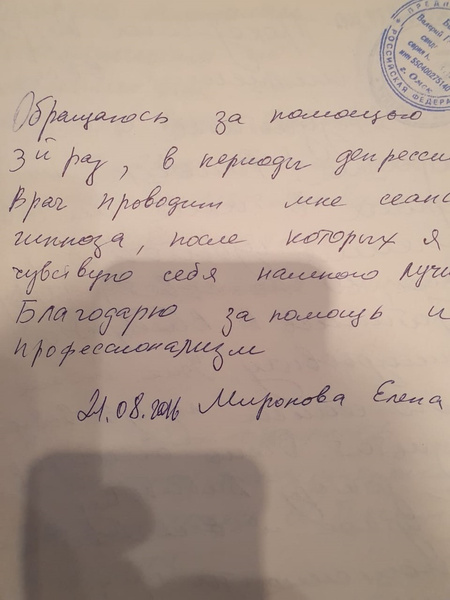 ПРЕДПРИ
Валерий П
свид
серия
ИНН 5504002751
г. Омск
РОССИЙСКАЯ ФЕДЕРА
Обращаюсь за помощью
3й раз, в периоды депресси
Врач проводит мне сеанс
гипноза, после которых я
чувствую себя намного лучш
Благодарю за помощь и
профессионализм
21.08.2016 Миронова Елена